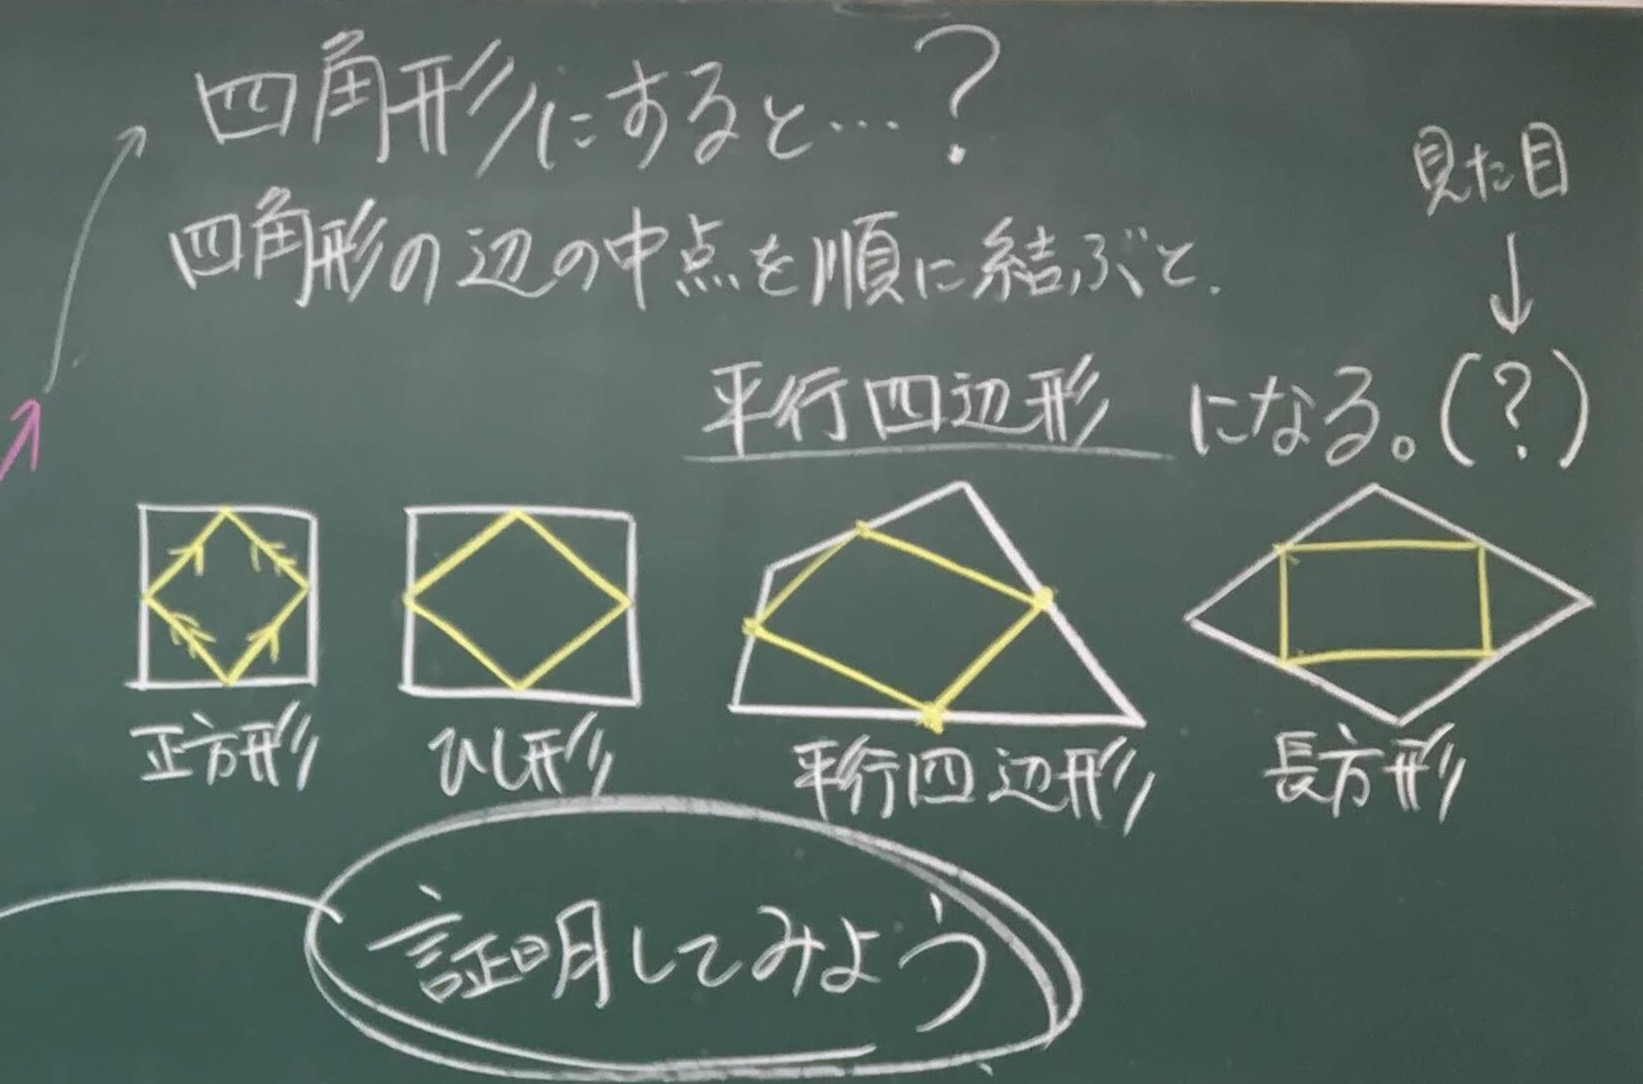 四角形にすると…?
見た目
四角形の辺の中点を順に結ぶと、
平行四辺形 になる。(?)
正方形 ひし形 平行四辺形 長方形
証明してみよう